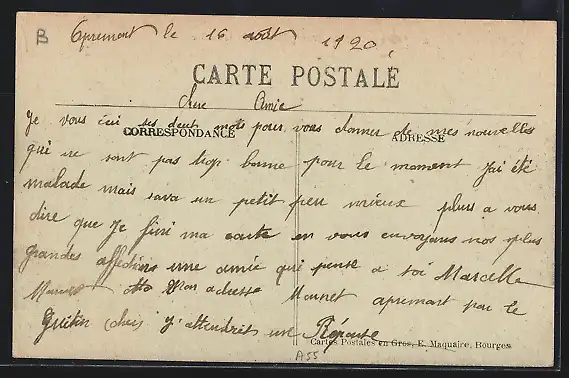 B
Apremont le 16 août 1920
CARTE POSTALE
Chere Amie
Je vous écri ses deut mots pour vous donner de mes nouvelles
CORRESPONDANCE ADRESSE
qui ne sont pas trop bonne pour le moment J'ai été
malade mais sava un petit peu mieux plus a vous
dire que Je fini ma carte en vous envoyant nos plus
grandes affections une amie qui pense a toi Marcelle
Mon adresse Monnet apremont par le
Guétin (cher) J'attendrit une Réponse
Cartes Postales en Gros, E. Maquaire, Bourges
A55